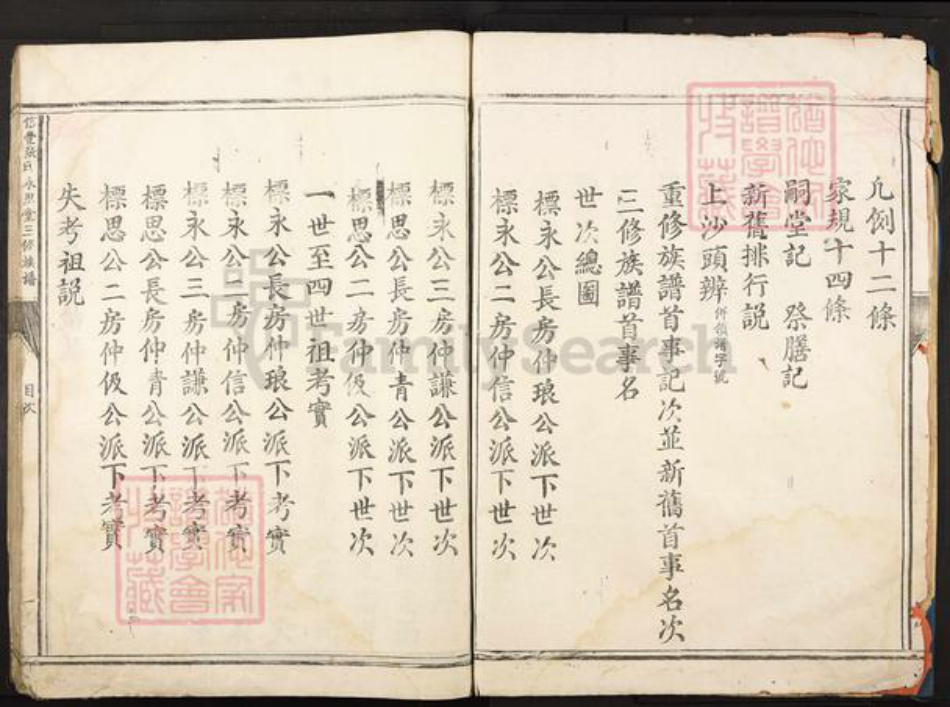 凡例十二條
家規十四條
嗣堂記 祭膳記
新舊排行説
上沙頭辨併領譜字號
重修族譜首事記次並新舊首事名次
三修族譜首事名
世次總圖
標永公長房仲琅公派下世次
標永公二房仲信公派下世次
標永公三房仲謙公派下世次
標思公長房仲青公派下世次
標思公二房仲伋公派下世次
一世至四世祖考實
標永公長房仲琅公派下考實
標永公二房仲信公派下考實
標永公三房仲謙公派下考實
標思公長房仲青公派下考實
標思公二房仲伋公派下考實
失考祖説
信豐張氏永思堂三修族譜
目次
一
譜學會
收藏
譜學會
收藏
FamilySearch